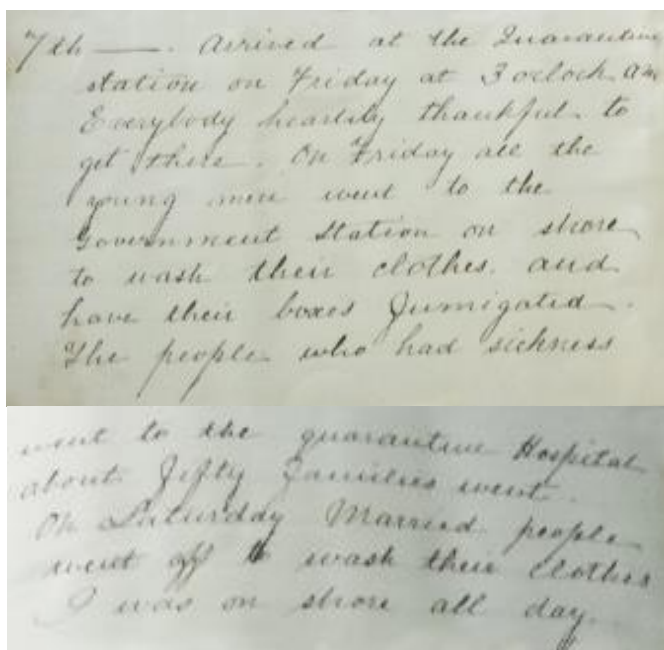 7th ——. Arrived at the Quarantine
station on Friday at 3 oclock am
Everybody heartily thankful to
get there. On Friday all the
young men went to the
Government Station on shore
to wash their clothes. and
have their boxes fumigated.
The people who had sickness
went to the quarantine Hospital
about fifty families went.
On Saturday Married people
went off to wash their clothes
I was on shore all day.